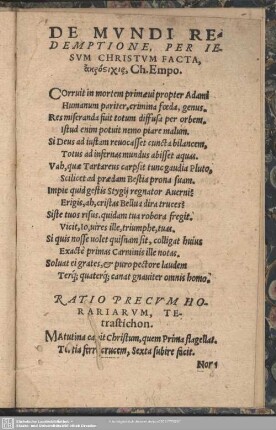 DE MVNDI RE-
DEMPTIONE, PER IE-
SVM CHRISTVM FACTA,
ἀκρόστιχις, Ch. Empo.
Corruit in mortem primæui propter Adami
Humanum pariter, crimina fœda, genus.
Res miseranda fuit totum diffusa per orbem.
Istud enim potuit nemo piare malum.
Si Deus ad iustam reuocasset cuncta bilancem,
Totus ad infernas mundus abisset aquas.
Vah, quæ Tartareus carpsit tunc gaudia Pluto,
Scilicet ad prædam Bestia prona suam.
Impie quid gestis Stygij regnator Auerni?
Erigis, ah, cristas Bellua dira truces?
Siste tuos risus, quidam tua robora fregit.
Vicit, io, vires ille, triumphe, tuas.
Si quis nosse volet quisnam sit, colligat huius
Exactè primas Carminis ille notas.
Soluat ei grates, & puro pectore laudem
Terq; quaterq; canat gnauiter omnis homo.
RATIO PRECVM HO-
RARIARVM, TE-
trastichon.
MAtutina capit Christum, quem Prima flagellat.
Tertia fert crucem, Sexta subire facit.
Nona